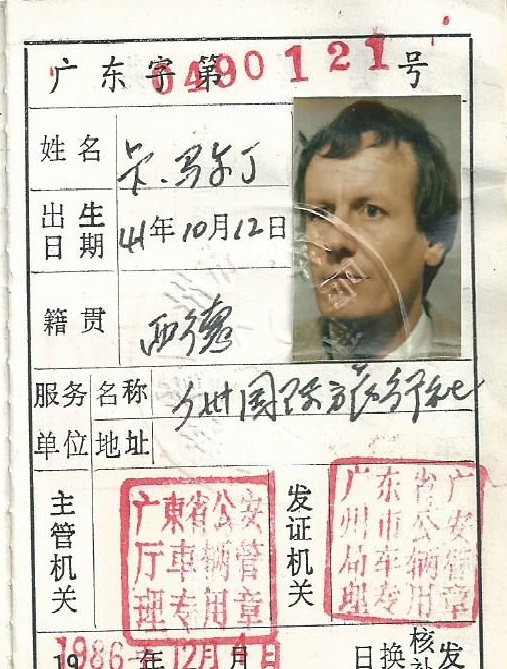 广东字第0490121号
姓名 卡.马尔丁
出生日期 41年10月12日
籍贯 西德
服务单位 名称 广州国际旅行社
地址
主管机关 广東省公安厅车辆管理专用章
发证机关 广东省广州市公安局车辆管理专用章
1986年12月4日
日换 核 发